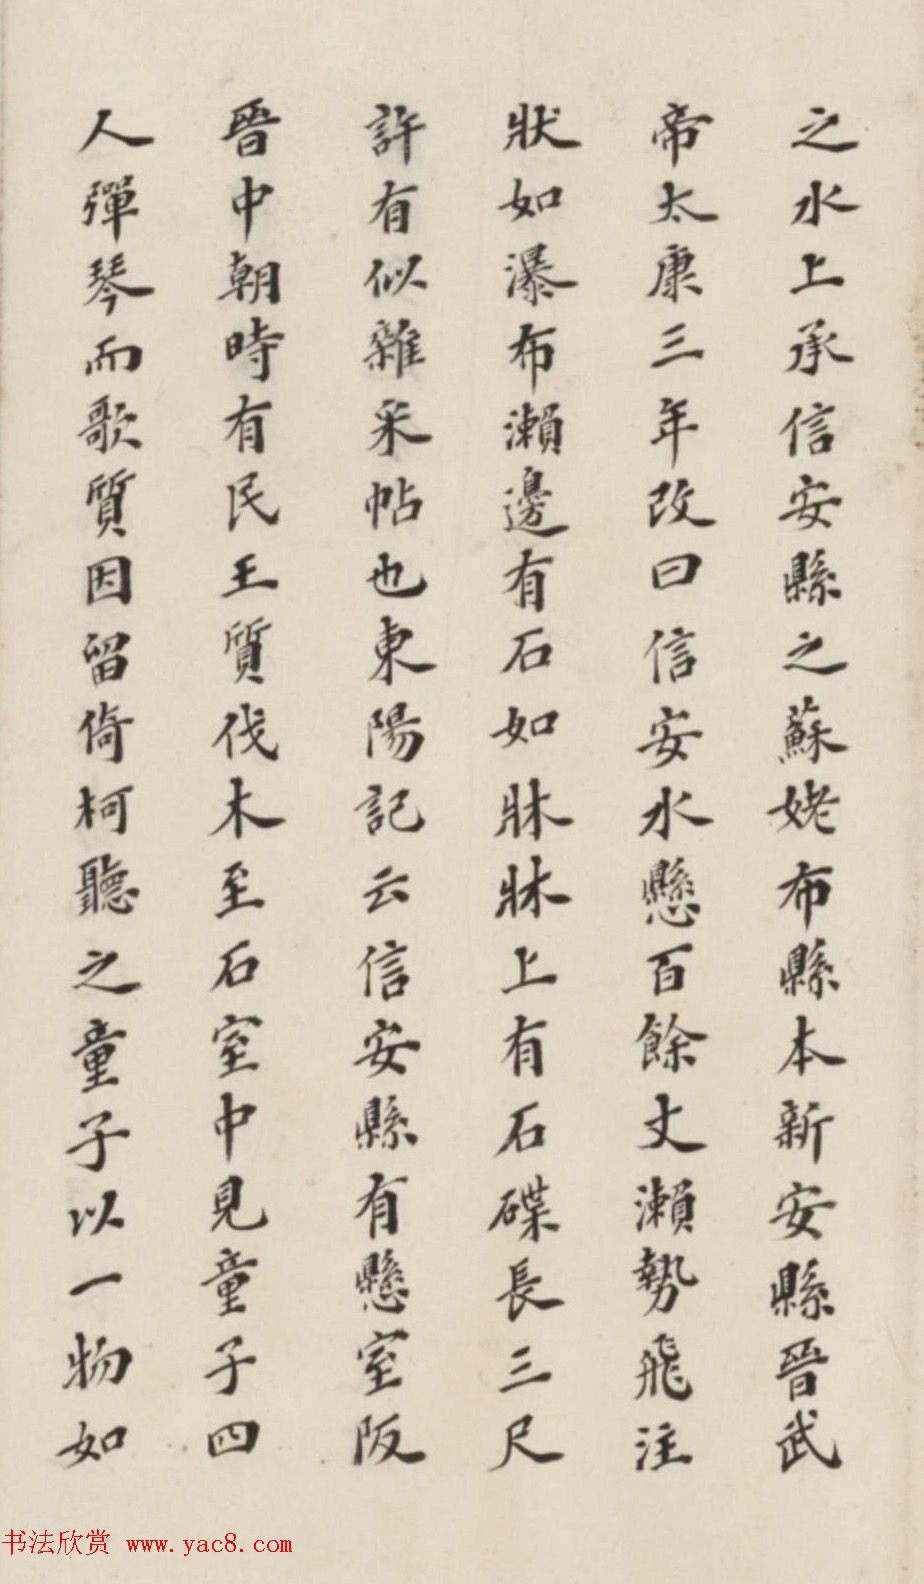 之水上承信安縣之蘇姥布縣本新安縣晉武
帝太康三年改曰信安水懸百餘丈瀨勢飛注
狀如瀑布瀨邊有石如牀牀上有石磼長三尺
許有似雜采帖也東陽記云信安縣有懸室阪
晉中朝時有民王質伐木至石室中見童子四
人彈琴而歌質因留倚柯聽之童子以一物如
书法欣赏 www.yac8.com